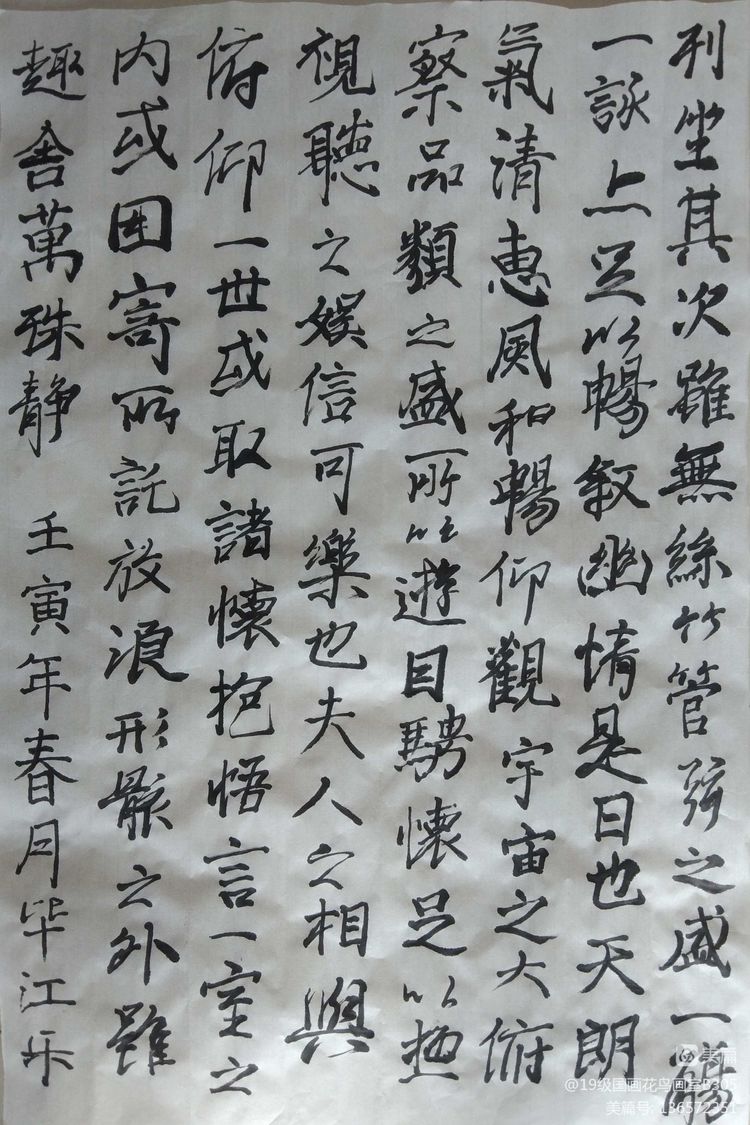 列坐其次雖無絲竹管弦之盛一觴
一詠亦足以暢敘幽情是日也天朗
氣清惠風和暢仰觀宇宙之大俯
察品類之盛所以遊目騁懷足以極
視聽之娛信可樂也夫人之相與
俯仰一世或取諸懷抱悟言一室之
内或因寄所託放浪形骸之外雖
趣舍萬殊静 壬寅年春月毕江乐
美篇
@19级国画花鸟画室B305
美篇号: 136572351